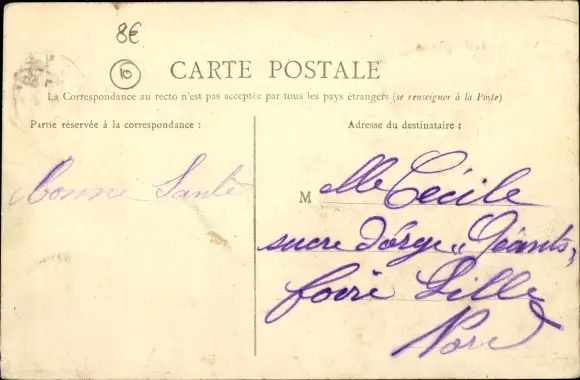 8€
10
CARTE POSTALE
La Correspondance au recto n'est pas acceptée par tous les pays étrangers (se renseigner à la Poste)
Partie réservée à la correspondance :
Adresse du destinataire :
Bonne Santé
M elle Cécile
sucre d'orge "Géants"
foire Lille
Nord